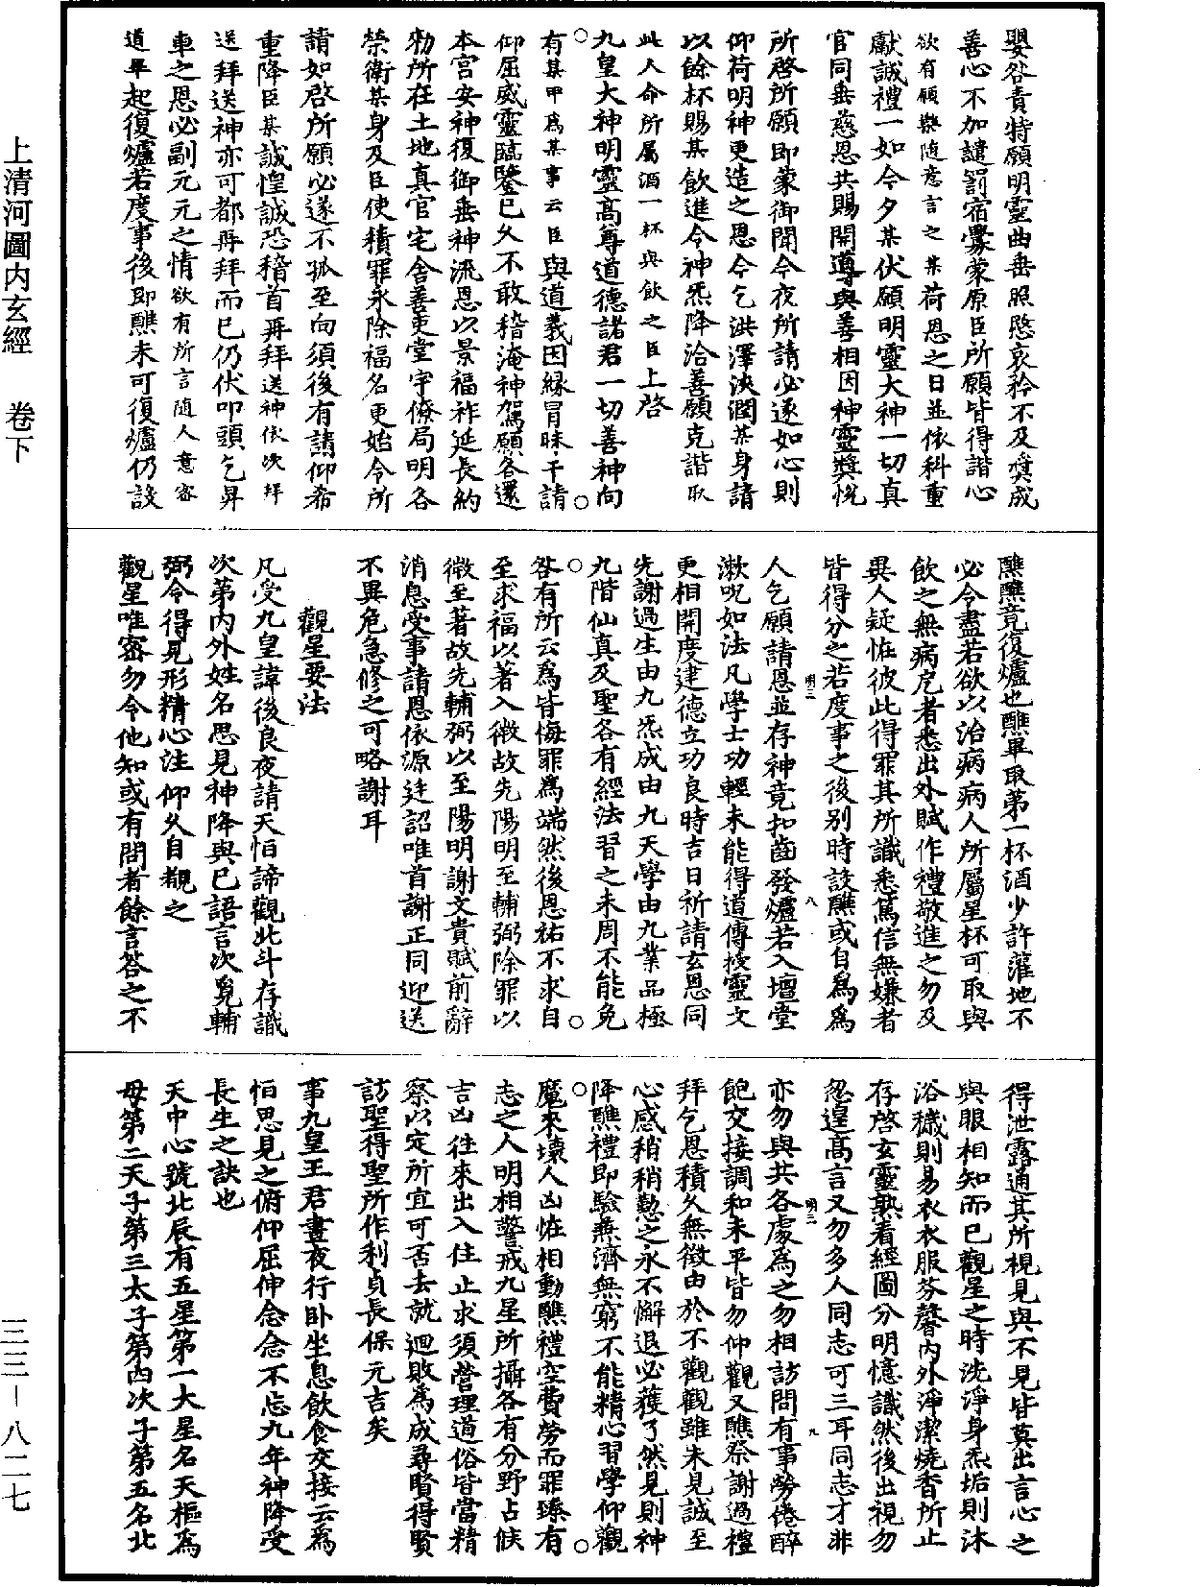 上清河圖內玄經　卷下
三三－八二七
嬰咎責特願明靈曲垂照愍哀矜不及奨成
善心不加譴罰宿釁蒙原臣所願皆得諧心
欲有願樂隨意言之某荷恩之日並依科重
獻誠禮一如今夕某伏願明靈大神一切真
官同垂慈恩共賜開導與善相因神靈奬悅
所啓所願即蒙御聞今夜所請必遂如心則
仰荷明神更造之恩今乞洪澤決潤某身請
以餘杯賜某飲進令神炁降洽善願克諧取
此人命所屬酒一杯與飲之臣上啓
九皇大神明靈高尊道德諸君一切善神向
有某甲爲某事云云臣與道義因緣冒昧干請
仰屈威靈臨鑒已久不敢稽淹神駕願各還
本宮安神復御垂神流恩以景福祚延長約
勑所在土地真官宅舍善吏堂宇僚局明各
榮衛某身及臣使積罪永除福名更始令所
請如啓所願必遂不孤至向須後有請仰希
重降臣某誠惶誠恐稽首再拜送神依次拜
送拜送神亦可都再拜而已仍伏叩頭乞昇
車之恩必副元元之情欲有所言隨人意密
道畢起復爐若度事後即醮未可復爐仍設
醮醮竟復爐也醮畢取第一杯酒少許灌地不
必令盡若欲以治病病人所屬星杯可取與
飲之無病厄者悉出外賦作禮敬進之勿及
異人疑怪彼此得罪其所識悉篤信無嫌者
皆得分之若度事之後别時設醮或自爲爲
人乞願請恩並存神竟扣齒發爐若入壇堂
漱呪如法凡學士功輕未能得道傳授靈文
更相開度建德立功良時吉日祈請玄恩同
先謝過生由九炁成由九天學由九業品極
九階仙真及聖各有經法習之未周不能免
咎有所云爲皆悔罪爲端然後恩祐不求自
至求福以著入微故先陽明至輔弼除罪以
微至著故先輔弼以至陽明謝文貴賦前辭
消息受事請恩依源廷詔唯首謝正同迎送
不異危急修之可略謝耳
觀星要法
凡受九皇諱後良夜請天怕諦觀北斗存識
次第內外姓名思見神降與已語言次覓輔
弼令得見形精心注仰久自覩之
觀星唯密勿令他知或有問者餘言答之不
得泄露通其所視見與不見皆莫出言心之
與眼相知而已觀星之時洗淨身炁垢則沐
浴穢則易衣衣服芬馨內外淨潔燒香所止
存啓玄靈熟看經圖分明憶識然後出視勿
忽遑高言又勿多人同志可三耳同志才非
亦勿與共各處爲之勿相訪問有事勞倦醉
飽交接調和未平皆勿仰觀又醮祭謝過禮
拜乞恩積久無徵由於不觀觀雖未見誠至
心感稍稍懃之永不懈退必獲了然見則神
降醮禮即驗兼濟無窮不能精心習學仰觀
魔來壞人凶怪相動醮禮空費勞而罪臻有
志之人明相警戒九星所攝各有分野占候
吉凶往來出入住止求須營理道俗皆當精
察以定所宜可否去就迴敗爲成尋賢得賢
訪聖得聖所作利貞長保元吉矣
事九皇王君晝夜行卧坐息飲食交接云爲
怕思見之俯仰屈伸念念不忘九年神降受
長生之訣也
天中心號北辰有五星第一大星名天樞爲
母第二天子第三太子第四次子第五名北
明三
八
明三
九